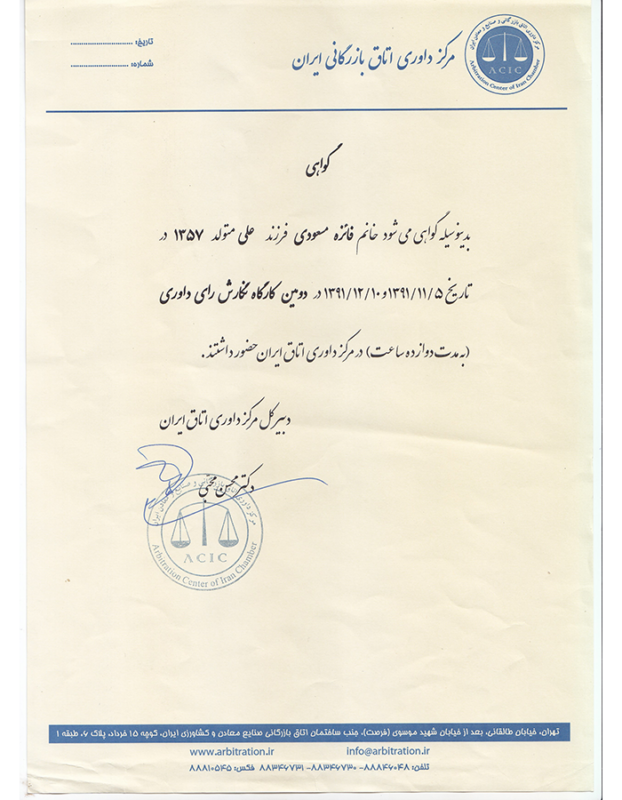 مرکز داوری اتاق بازرگانی و صنایع و معادن ایران
ACIC
Arbitration Center of Iran Chamber
مرکز داوری اتاق بازرگانی ایران
تاریخ: ............................
شماره: ............................
گواهی
بدینوسیله گواهی می شود خانم فائزه مسعودی فرزند علی متولد ۱۳۵۷ در
تاریخ ۱۳۹۱/۱۱/۵ و ۱۳۹۱/۱۲/۱۰ در دومین کارگاه نگارش رای داوری
(به مدت دوازده ساعت) در مرکز داوری اتاق ایران حضور داشتند.
دبیرکل مرکز داوری اتاق ایران
دکتر محسن محبی
مرکز داوری اتاق بازرگانی و صنایع و معادن ایران
ACIC
Arbitration Center of Iran Chamber
تهران، خیابان طالقانی، بعد از خیابان شهید موسوی (فرصت)، جنب ساختمان اتاق بازرگانی صنایع معادن و کشاورزی ایران، کوچه ۱۵ خرداد، پلاک ۶، طبقه ۱
www.arbitration.ir info@arbitration.ir
تلفن: ۸۸۸۴۶۰۴۸ -۸۸۳۴۶۷۳۰ -۸۸۳۴۶۷۳۱ فکس: ۸۸۸۱۰۵۴۵